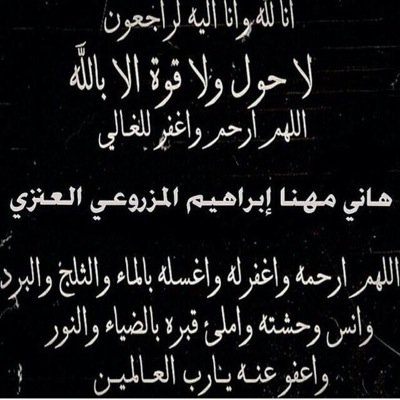 انا لله وانا اليه لراجعون
لا حول ولا قوة الا بالله
اللهم ارحم واغفر للغالي
هاني مهنا إبراهيم المزروعي العنزي
اللهم ارحمه واغفرله واغسله بالماء والثلج والبرد
وانس وحشته واملئ قبره بالضياء والنور
واعفو عنه يارب العالمين